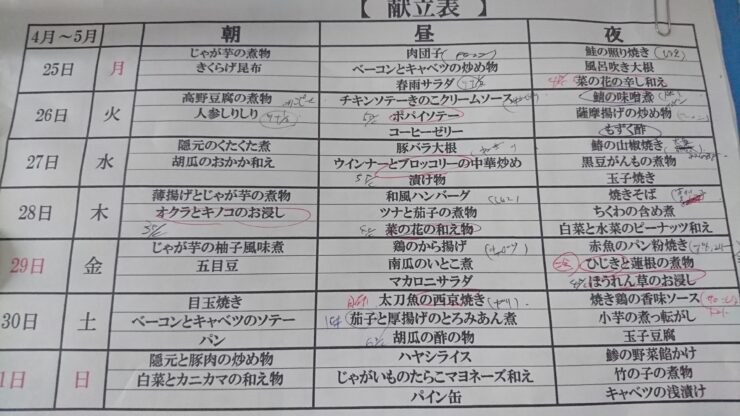 【 献立表 】
4月～5月 朝 昼 夜
25日 月
じゃが芋の煮物
きくらげ昆布
肉団子
ベーコンとキャベツの炒め物
春雨サラダ
鮭の照り焼き
風呂吹き大根
菜の花の辛し和え
26日 火
高野豆腐の煮物
人参しりしり
チキンソテーきのこクリームソース
ポパイソテー
コーヒーゼリー
鯖の味噌煮
薩摩揚げの炒め物
もずく酢
27日 水
隠元のくたくた煮
胡瓜のおかか和え
豚バラ大根
ウインナーとブロッコリーの中華炒め
漬け物
鰆の山椒焼き
黒豆がんもの煮物
玉子焼き
28日 木
薄揚げとじゃが芋の煮物
オクラとキノコのお浸し
和風ハンバーグ
ツナと茄子の煮物
菜の花の和え物
焼きそば
ちくわの含め煮
白菜と水菜のピーナッツ和え
29日 金
じゃが芋の柚子風味煮
五目豆
鶏のから揚げ
南瓜のいとこ煮
マカロニサラダ
赤魚のパン粉焼き
ひじきと蓮根の煮物
ほうれん草のお浸し
30日 土
目玉焼き
ベーコンとキャベツのソテー
パン
太刀魚の西京焼き
茄子と厚揚げのとろみあん煮
胡瓜の酢の物
焼き鶏の香味ソース
小芋の煮っ転がし
玉子豆腐
1日 日
隠元と豚肉の炒め物
白菜とカニカマの和え物
ハヤシライス
じゃがいものたらこマヨネーズ和え
パイン缶
鯵の野菜餡かけ
竹の子の煮物
キャベツの浅漬け